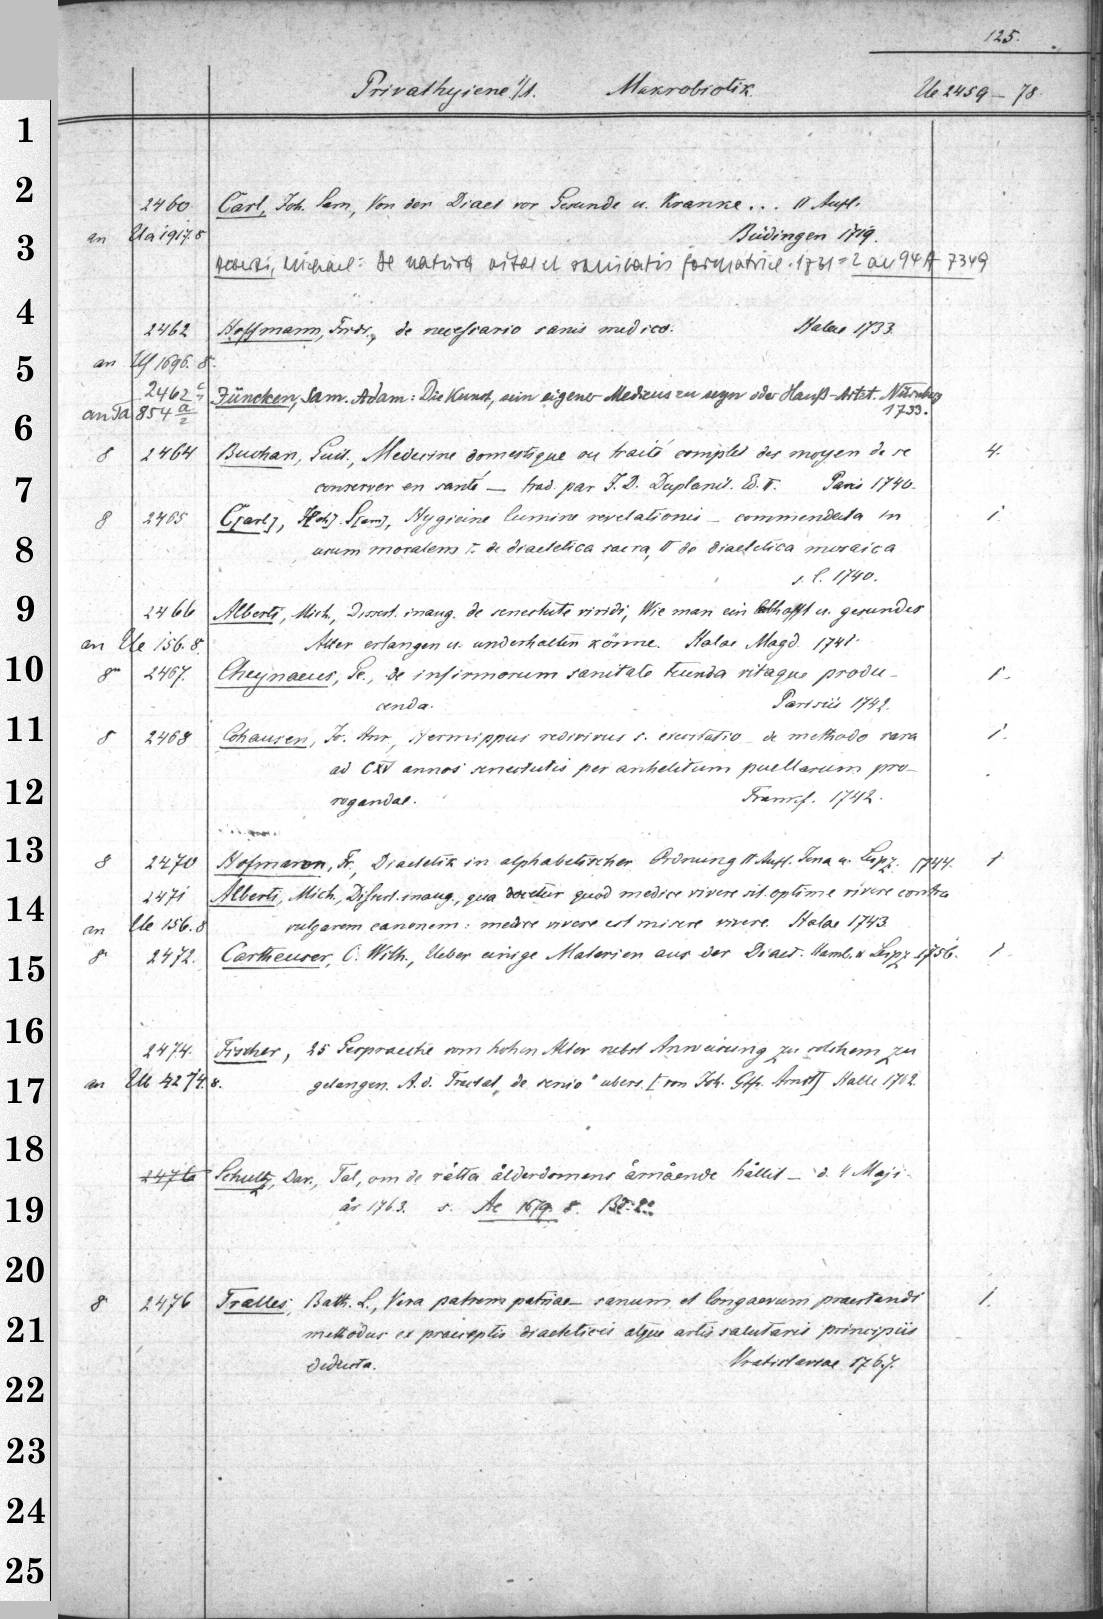 125.
Privathygiene 1/1. Makrobiotik. Ue 2459 – 78.
1
2
2460 Carl, Joh. Sam, Von der Diaet vor Gesunde u. Kranke... II Aufl.
an Ua 1917. 8 Büdingen 1719.
3
Michael: de natura sanitatis 1731 = 2 an 94 A 7349
4
2462 Hoffmann, Frdr., de necessario sanis medico. Halae 1733.
an 1696. 8.
5
2462 c/7 Jüncken, Sam. Adam: Die Kunst, sein eigener Medicus zu seyn oder Hauß-Artzt. Nürnberg
an Ta 854 a/2 1733.
6
8 2464 Buchan, Guil., Medecine domestique ou traité complet des moyen de se 4.
7
conserver en santé — trad. par J. D. Duplanil. Ed. V. Paris 1740.
8 2465 C[arl], J[oh] S[am], Hygieine lumine revelationis – commendata in 1
8
usum moralem I. de diaetetica sacra, II de diaetetica mosaica
s. l. 1740.
9
2466 Alberti, Mich., Dissert. inaug. de senectute viridi, Wie man ein u. gesundes
an Ue 156. 8. Alter erlangen u. underhalten könne. Halae Magd. 1741.
10
8 2467. Cheynaeus, Ge., de infirmorum sanitate tuenda vitaque produ- 1.
cenda. Parisiis 1742.
11
8 2468 Cohausen, Jo. Hnr, Hermippus redivivus s. exercitatio – de methodo rara 1.
ad CXV annos senectutis per anhelitum puellarum pro-
12
rogandae. Francf. 1742.
13
8 2470 Hofmann, Fr., Diaetetik in alphabetischer Ordnung II Aufl. Jena u. Leipz. 1744. 1
2471 Alberti, Mich., Dissert. inaug., qua docetur quod medice vivere sit optime vivere contra
14
an Ue 156. 8 vulgarem canonem: medice vivere est misere vivere. Halae 1743
8 2472. Cartheuser, C. Wilh., Ueber einige Materien aus der Diaet. Hamb. u Leipz 1756. 1.
15
16
2474. Fischer, 25 Gespraeche vom hohen Alter nebst Anweisung zu solchem zu
17
an Ue 4274. 8. gelangen. A. d. Tractat „de senio“ übers. [von Joh. Gtfr. Arndt] Halle 1762
18
2476 Schultz, Dav., Tal, om de rätta ålderdomens ämående hållit – d. 4 Maji
19
år 1763. s. Ae 1679. 8.
20
8 2476 Tralles, Balth. L., Vera patrem patriae – sanum et longaevum praestandi 1.
21
methodus ex praeceptis diaeteticis atque artis salutaris principiis
22
deducta. Vratislaviae 1767.
23
24
25